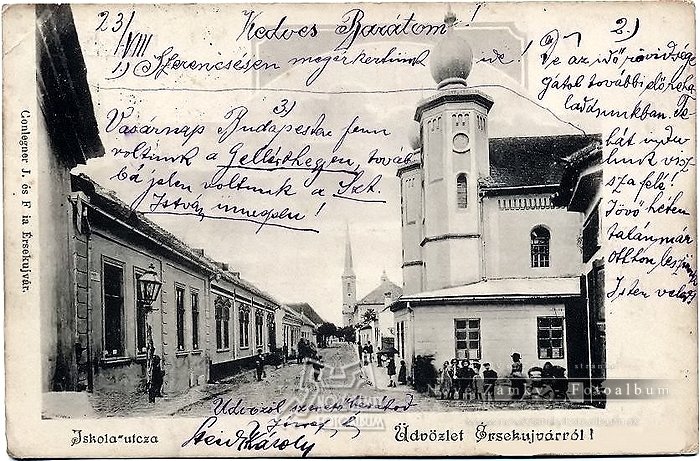 23/VIII
Kedves Barátom!
1) Szerencsésen megérkeztünk ide!
2.)
De az idő rövidsége
gátol további
Tehát
vissza felé.
Jövő héten
talán már
otthon leszünk
Isten veled
3)
Vasárnap Budapesten fenn
voltunk a Gellérthegyen, továb-
bá jelen voltunk a Szt.
István ünnepén!
Üdvözöl szerető barátod
József
Károly
Conlegner J. és Fia Érsekujvár.
Iskola-utcza
Üdvözlet Érsekujvárról!
Fotoalbum